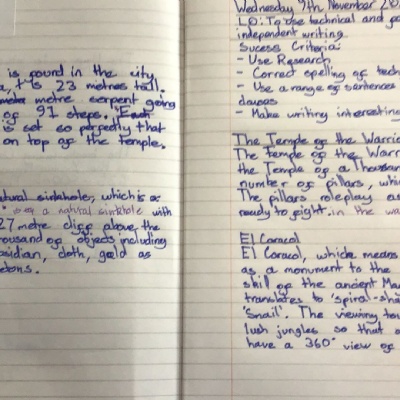 is found in the city
it is 23 metres tall.
metre serpent going
of 91 steps. Each
is set so perfectly that
on top of the temple.
natural sinkhole, which is a
is a natural sinkhole with
27 metre cliff above the
thousand of objects including
obsidian, cloth, gold as
Wednesday 9th November
LO: To use technical and
independent writing.
Sucess Criteria:
- Use Research
- Correct spelling of
- Use a range of sentences
- Make writing interesting
The Temple of the
The temple of the
the Temple of a
number of pillars,
The pillars roleplay as
ready to fight. in the
El Caracol
El Caracol, which means
as a monument to the
skill of the ancient
translates to 'spiral-
'Snail'. The viewing
lush jungles so that
have a 360° view of